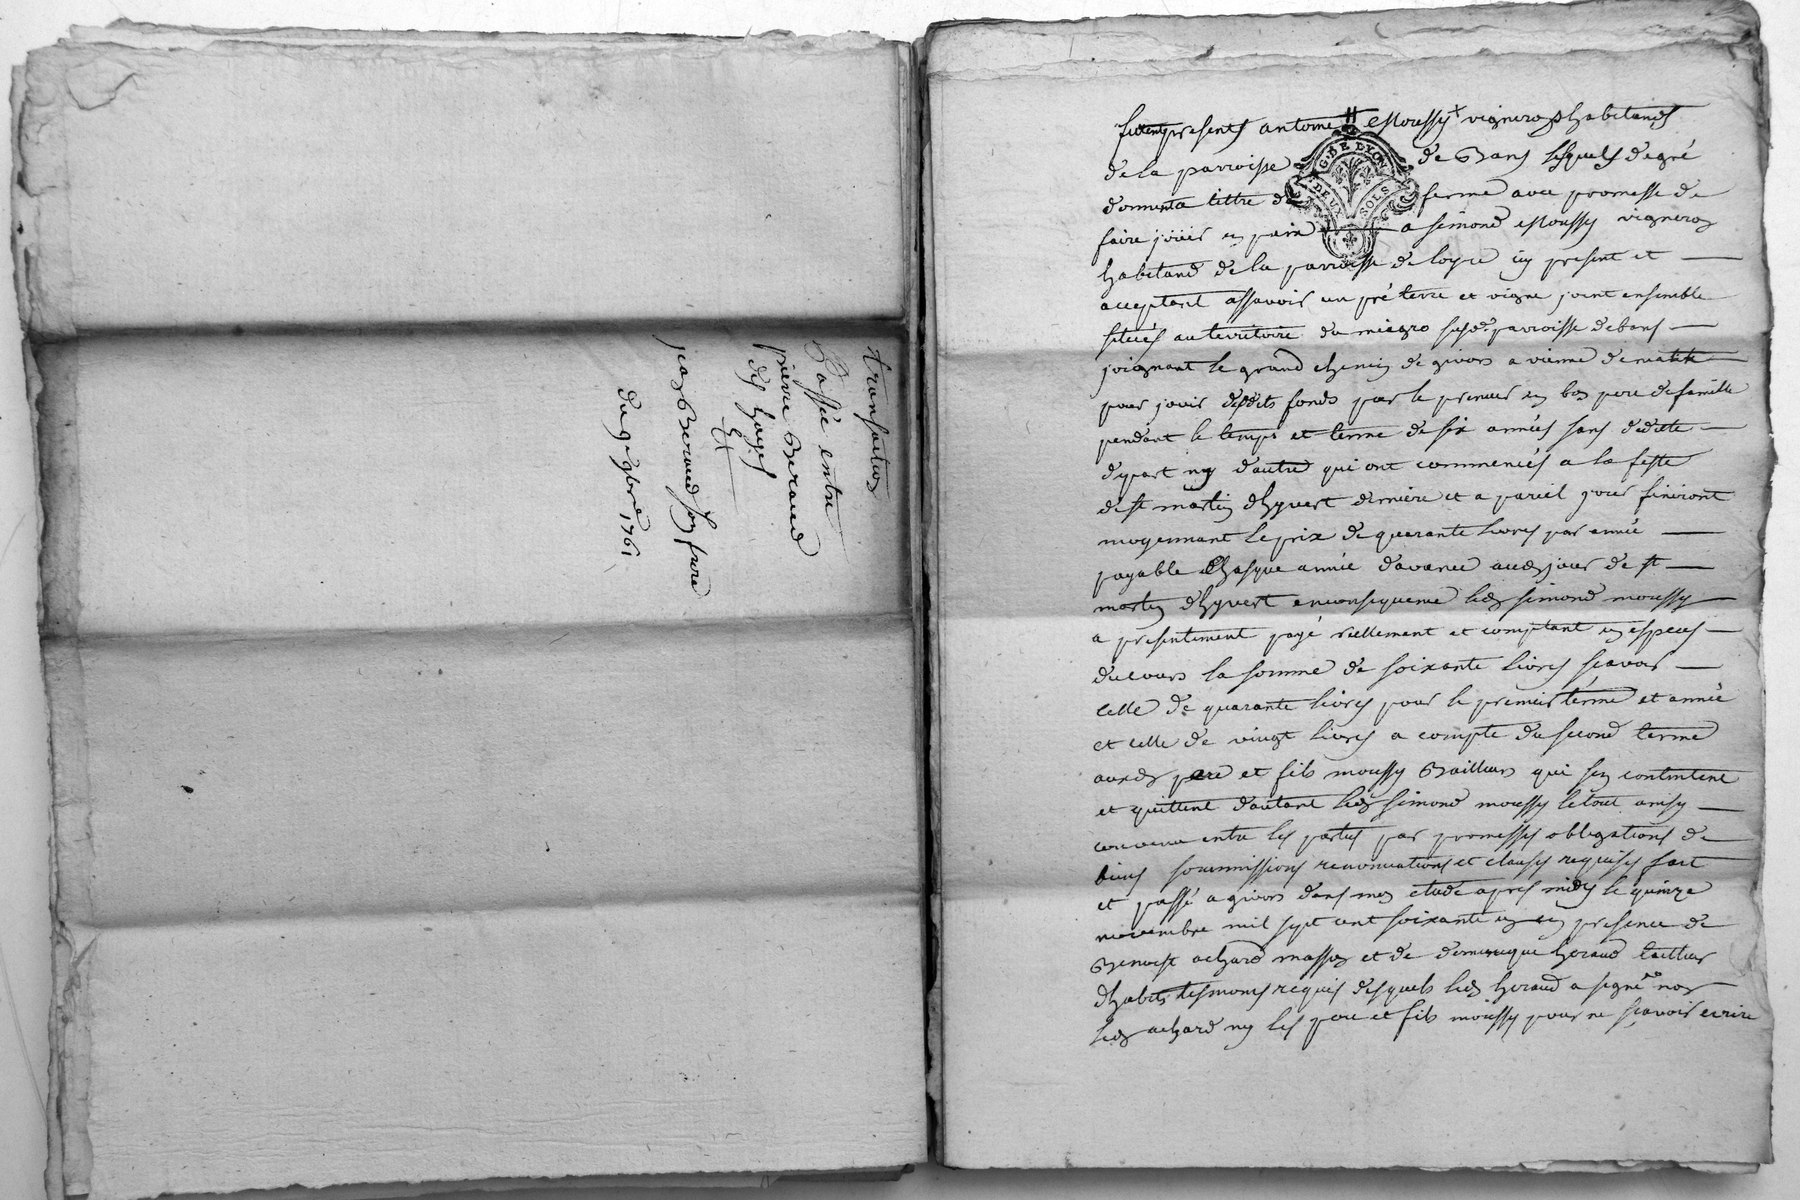 transaction
Passée entre
pierre Beraud
des hayes
Et
jean Beraud son frere
du 9 9bre 1761
furent presents antoine moussy + vignerons habitands
de la parroisse de Bans lesquels de gré
donnent a tittre de ferme avec promesse de
faire jouir en paix a simond moussy vigneron
habitand de la parroisse de loyre icy present et
acceptant assavoir un pré terre et vigne joint ensemble
situés au territoire du susd. parroisse de bans
joignant le grand chemin de givors a vienne de
pour jouir desdits fonds par le preneur en bon pere de famille
pendant le temps et terme de six années sans dedite
de part ny d'autre qui ont commencés a la feste
de st martin dhyvert derniere et a pareil jour finiront
moyennant le prix de quarante livres par année
payable Chasque année davance aud. jour de st
martin dhyvert en consequence led. simond moussy
a presentement payé reellement et comptant en especes
du cours la somme de soixante livres scavoir
celle de quarante livres pour le premier terme et année
et celle de vingt livres a compte du second terme
auxd. pere et fils moussy Bailleurs qui sen contentent
et quittent dautant led. simond moussy le tout ainsy
convenu entre les parties par promesses obligations de
biens soumissions renonciations et clauses requises fait
et passé a givors dans mon etude apres midy le quinze
novembre mil sept cent soixante un en presence de
Benoist achard masson et de dominique heraud tailleur
dhabits tesmoins requis desquels led. heraud a signé non
led. achard ny les pere et fils moussy pour ne scavoir ecrire
G. DE LYON
DEUX SOLS